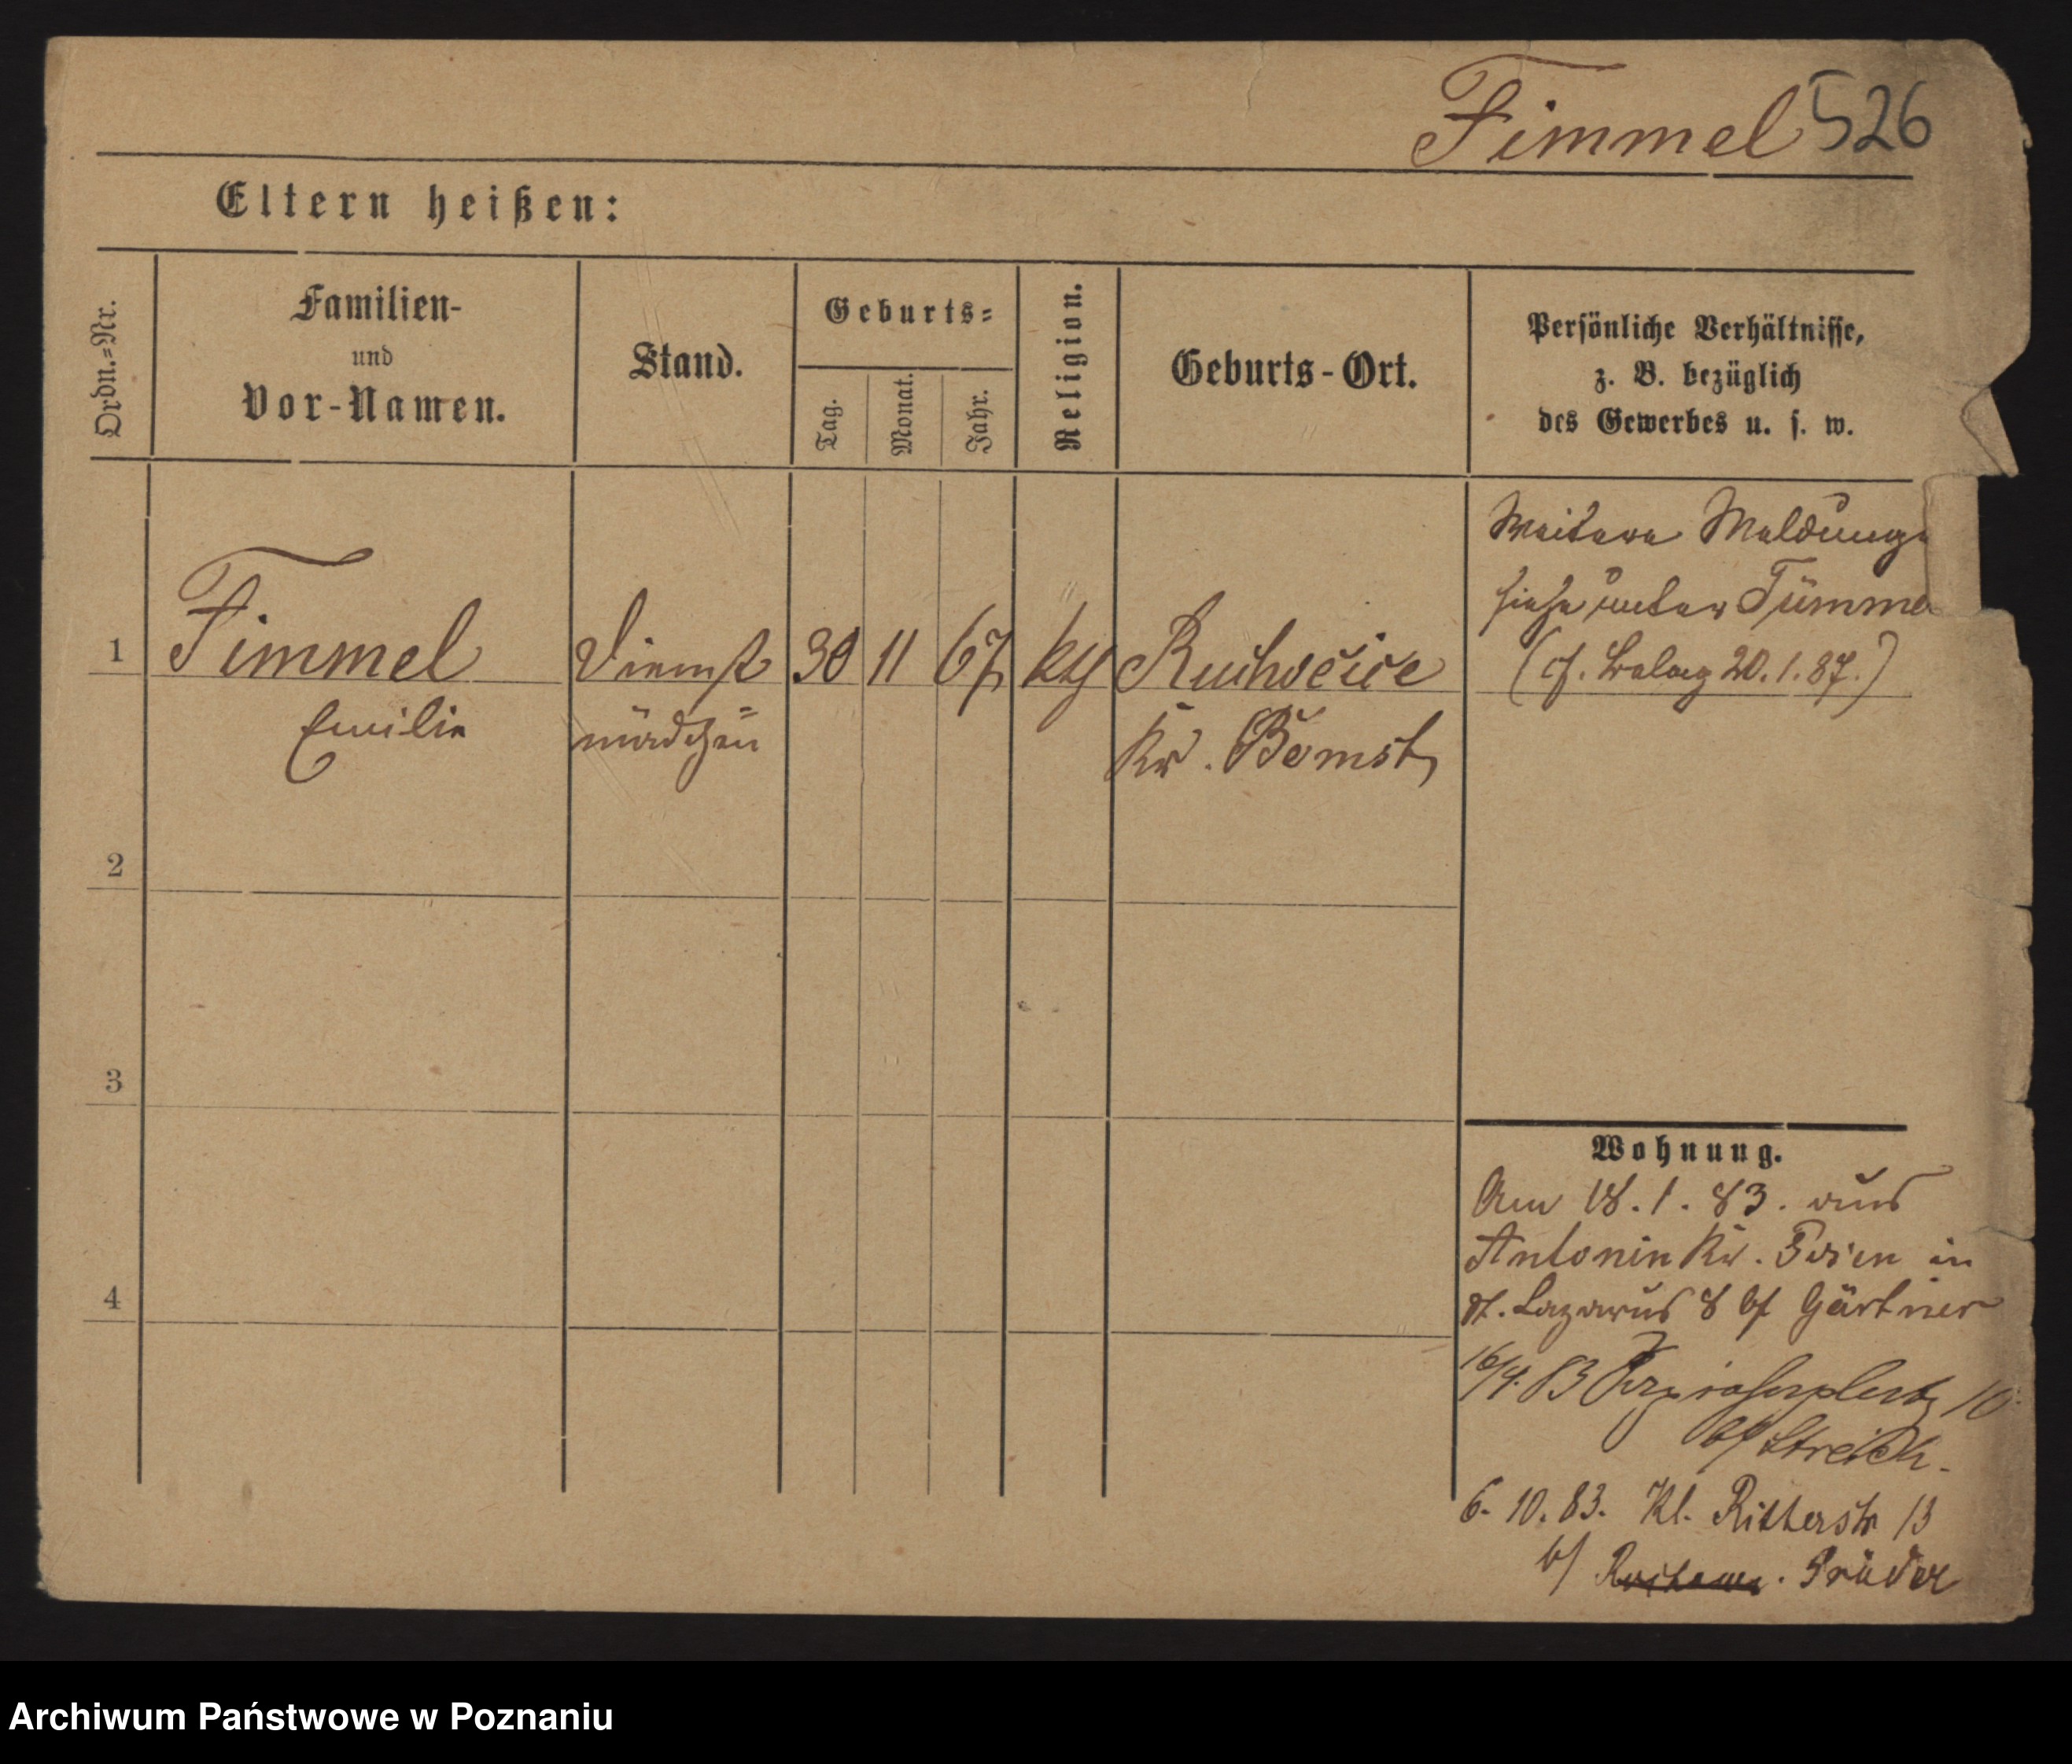 Fimmel 526
Eltern heißen:
Ordn.=Nr.
Familien-
und
Vor-Namen.
Stand.
Geburts=
Tag.
Monat.
Jahr.
Religion.
Geburts-Ort.
Persönliche Verhältnisse,
z. B. bezüglich
des Gewerbes u. s. w.
1 Fimmel Dienst 30 11 67 kth
Emilie mädchen
Kr. Bomst
Weitere Meldunge
siehe unter Tümme
(cf. 20.1.87.)
2
3
4
Wohnung.
Am 18.1.83. aus
Antonin Kr. Posen in
St. Lazarus 8 bf Gärtner
16/4.83 10
bf Streich.
6.10.83. Kl. Ritterstr 13
bf
Archiwum Państwowe w Poznaniu